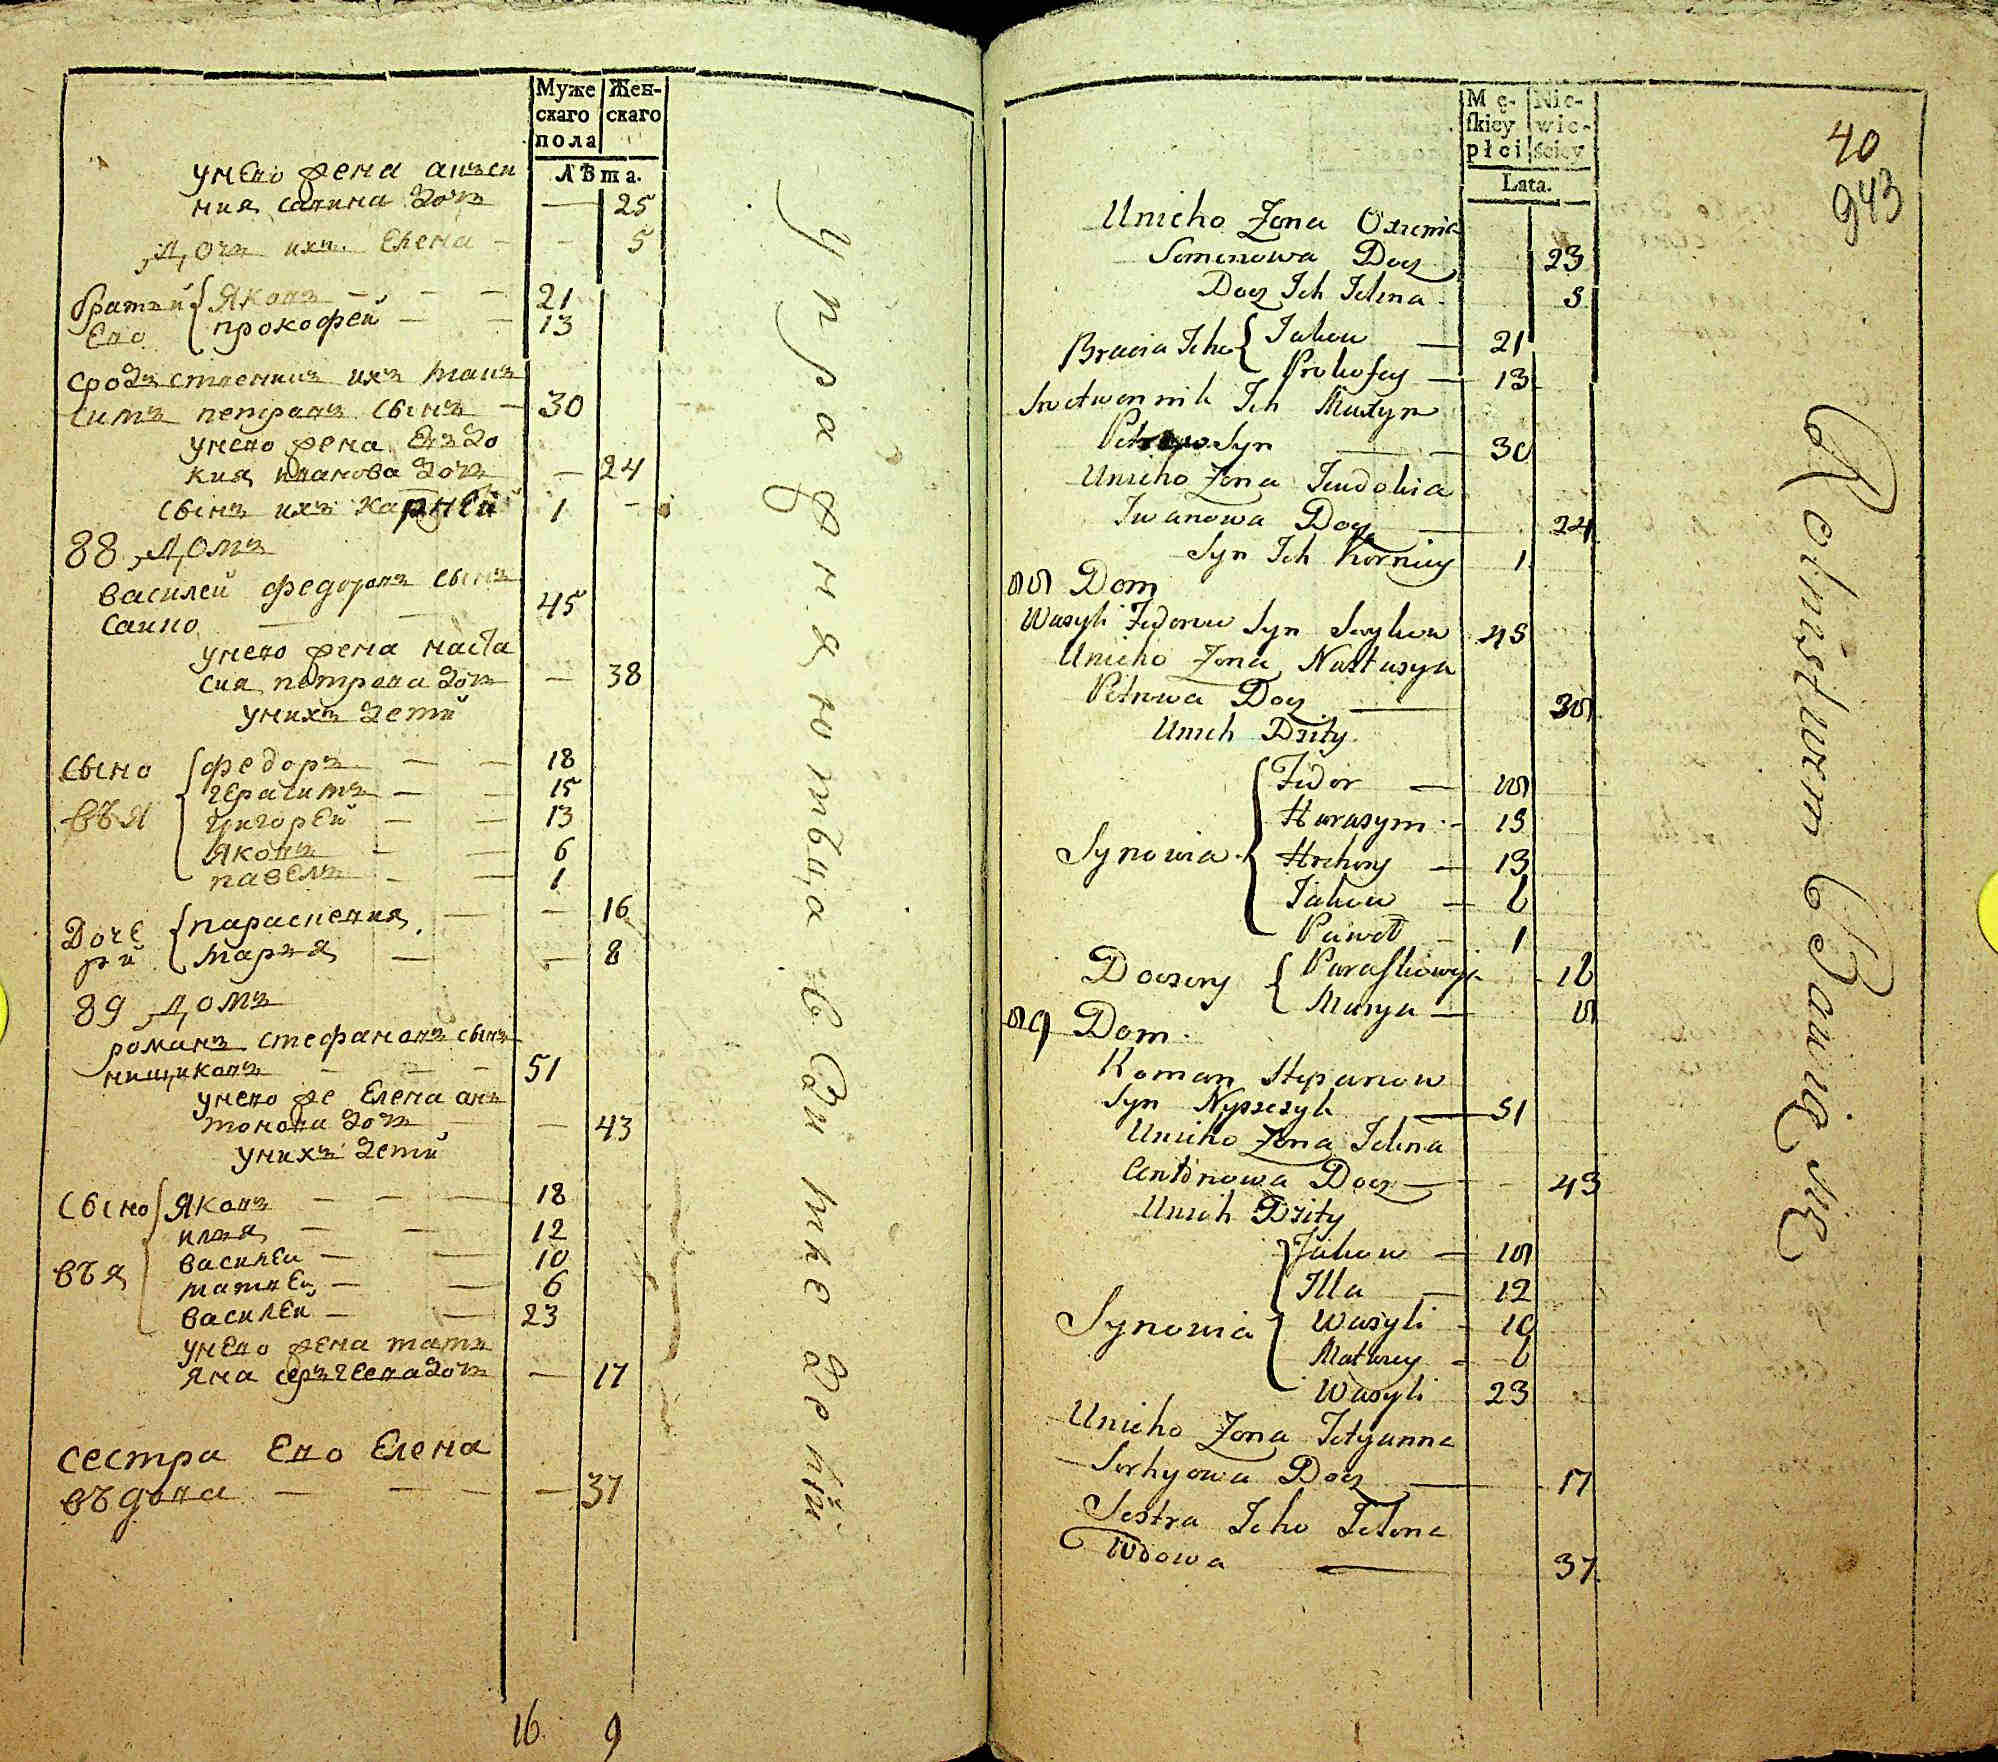 Муже
скаго
пола
Жен-
скаго
Лѣта.
унево жена аксѣ
ния савина дочъ — 25
дочъ ихъ Елена - - 5
братьи Яковъ - - - 21
Ево прокофей - - 13
сродъственникъ ихъ
петровъ сынъ - 30
унево жена Евъдо
кия иванова дочъ — 24
сынъ ихъ карней 1 -
88 домъ
василей федоровъ сынъ
саико - - 45
унево жена наста
сия петрова дочъ — 38
унихъ дети
сыно
въя
федоръ - - 18
герасимъ - - 15
григорей - - 13
Яковъ - - 6
павелъ - - 1
доче
ри
параскевия - - 16
марья - - 8
89 домъ
романъ стефановъ сынъ
нищиковъ - - - 51
унево же Елена ан
тонова дочъ - - 43
унихъ дети
сыно
въя
Яковъ - - - 18
илья - - 12
василеи - - 10
матвеи - - 6
василеи - - 23
унево жена татъ
яна серъгеева дочъ — 17
сестра Ево Елена
въдова - - - - 37
16 9
упражняютъца въ
Mę-
ſkiey
płci
Nie-
wie-
ściey
Lata.
40
943
Unieho Zona Oxienia
Semenowa Docz 23
Docz Ich Jelena 5
Bracia Jeho Jakow — 21
Prokofey — 13
Ich
Petrow Syn — 30
Unieho Zona Jeudokia
Iwanowa Docz — 24
Syn Ich Korniey 1
88 Dom
Wasyli Fedorow Syn Saykow 45
Unieho Zona Nastasya
Petrowa Docz — 38
Unich Dzity
Synowia
Fedor — 18
Harasym - 15
Hrehory — 13
Jakow — 6
Paweł - 1
Doczery Paraſkowija - 16
Marya — 8
89 Dom
Roman Stepanow
Syn Nyszczyk — 51
Unieho Zona Jelena
Antonowa Docz — 43
Unich Dzity
Synowia
Jakow — 18
Illa — 12
Wasyli - 10
Matwey - 6
Wasyli 23
Unieho Zona Tetyanna
Serhyowa Docz — 17
Sestra Jeho Jelena
Wdowa — 37
Rolnictwem Bawią się